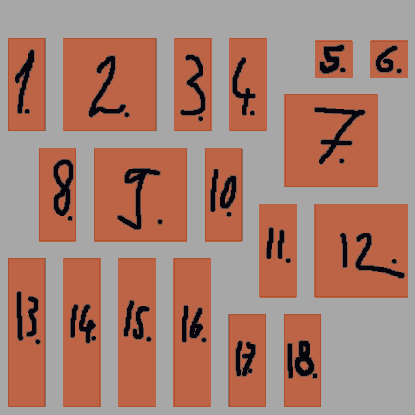 1. 2. 3. 4. 5. 6.
7.
8. 9. 10.
11. 12.
13. 14. 15. 16.
17. 18.